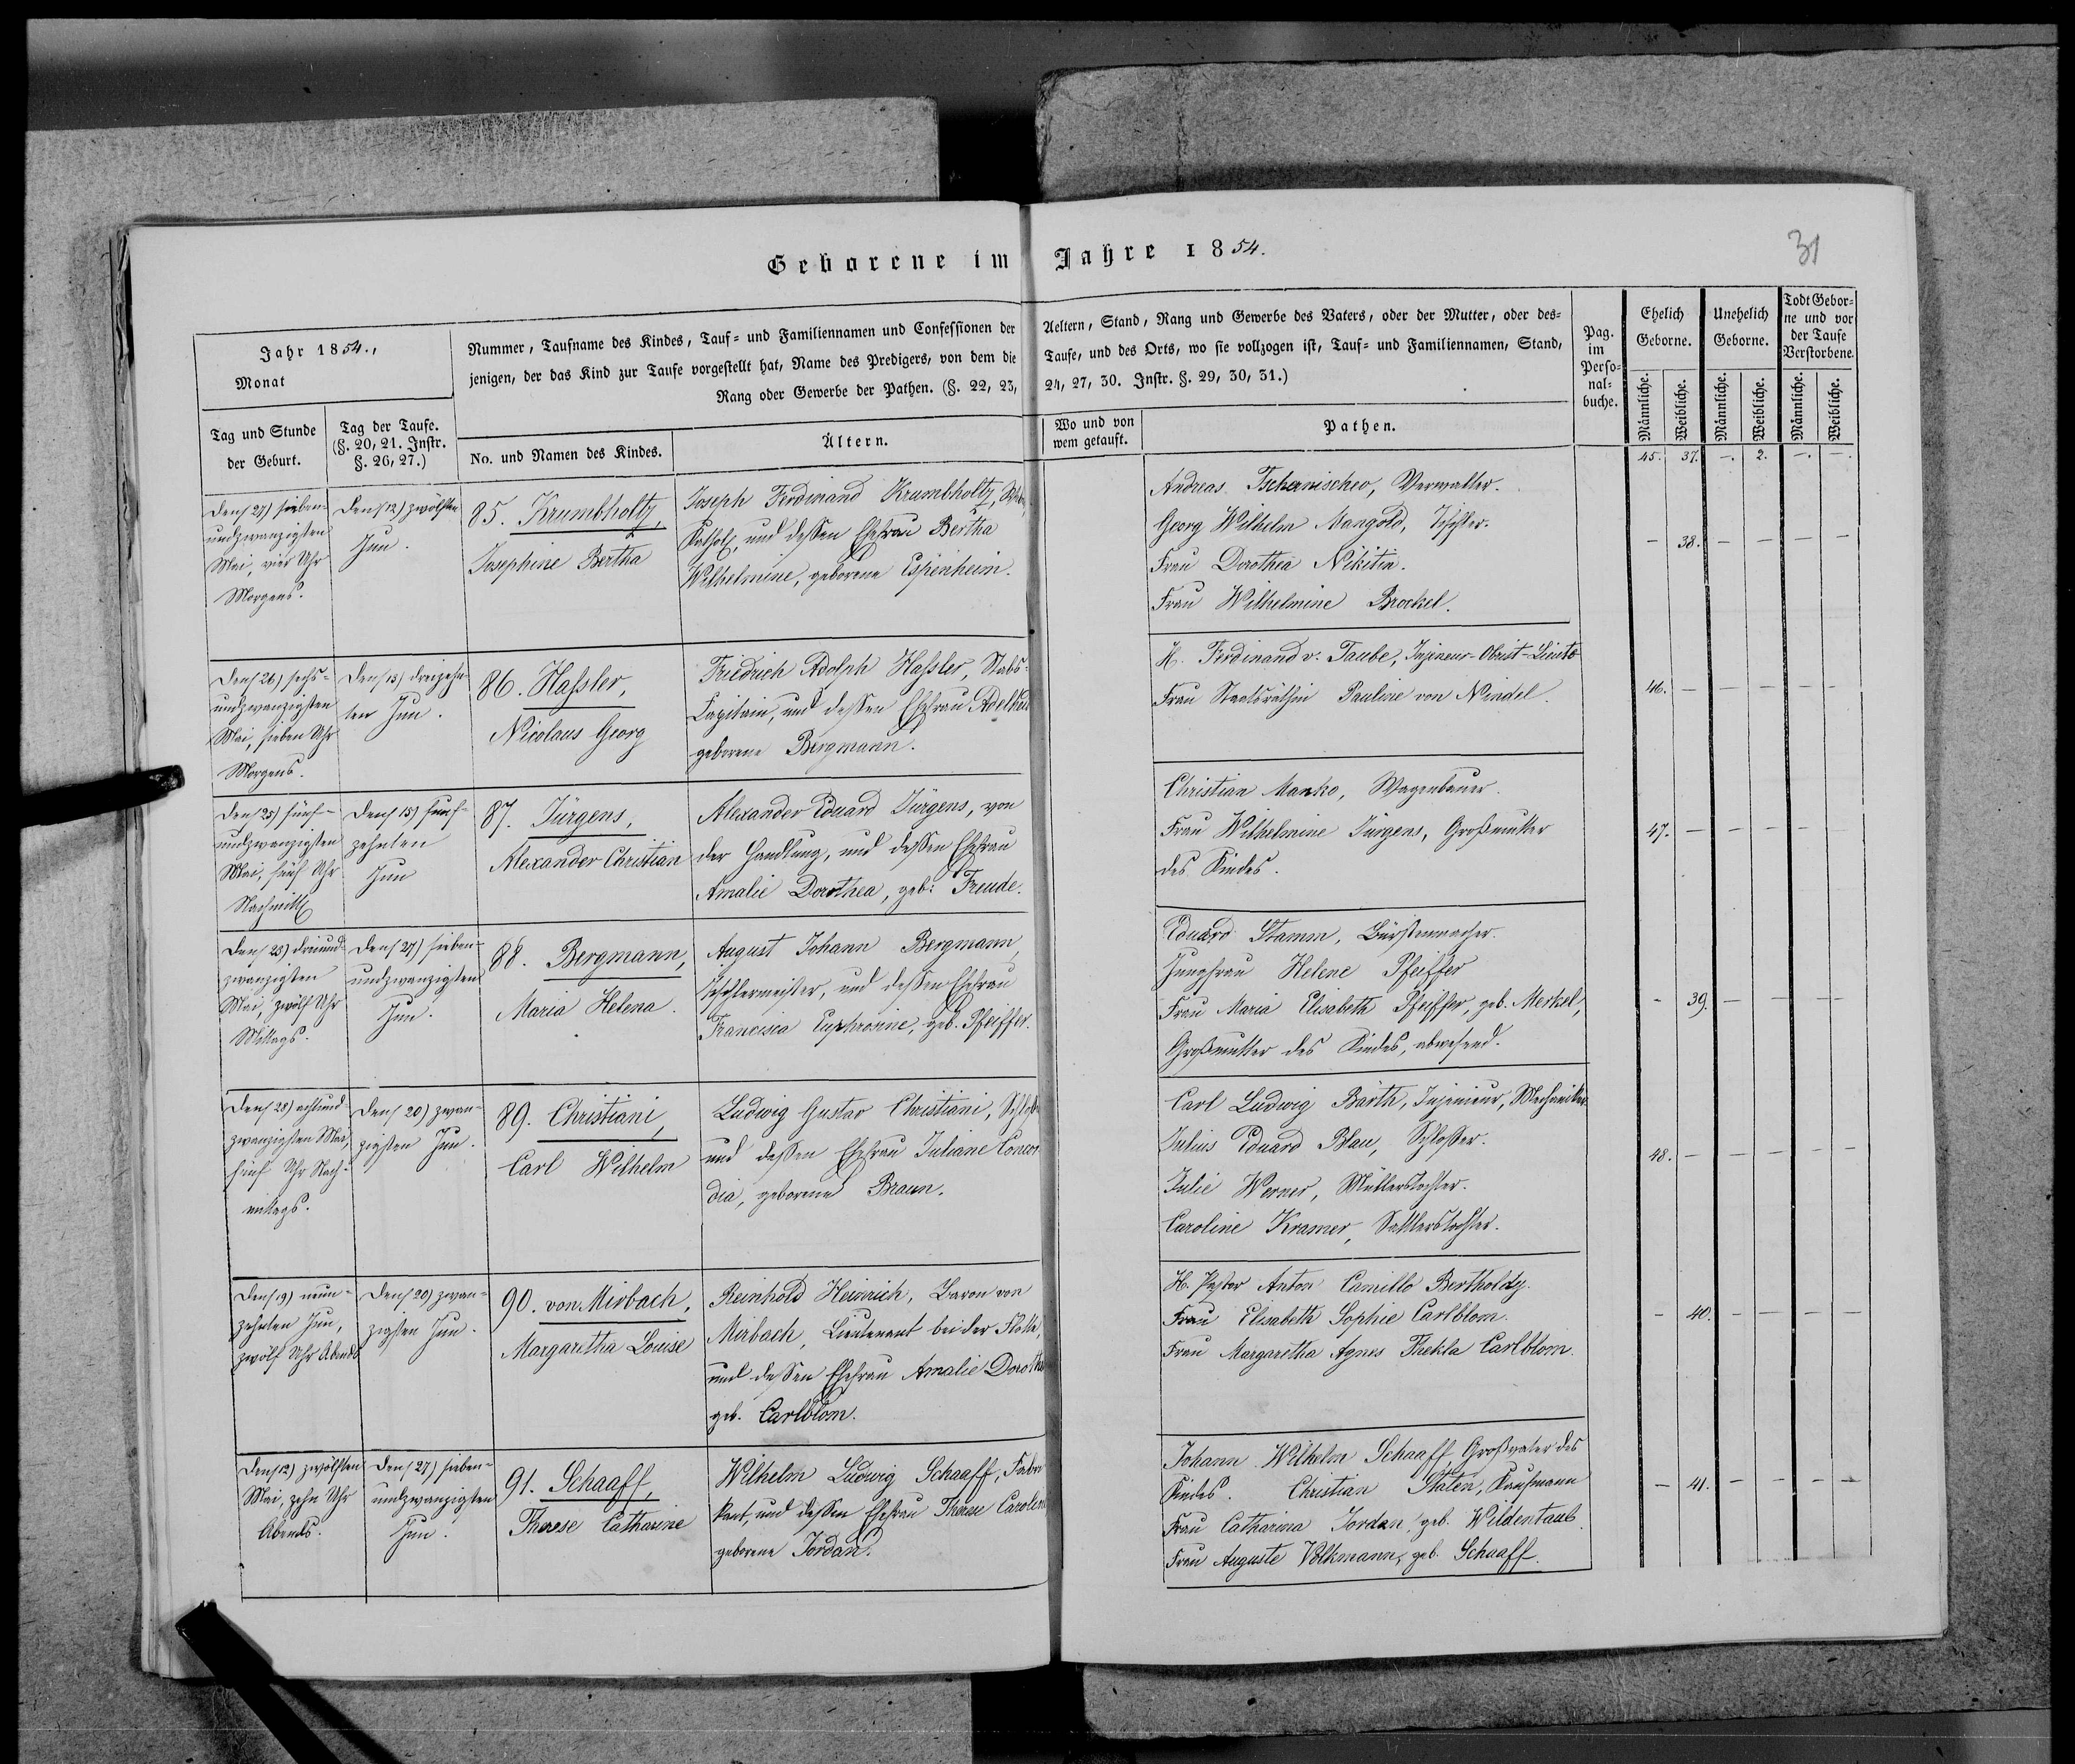 Geborene im Jahre 1854.
31
Jahr 1854.,
Monat
Tag und Stunde
der Geburt.
Tag der Taufe.
(§. 20, 21. Instr.
§. 26, 27.)
Nummer, Taufname des Kindes, Tauf- und Familiennamen und Confessionen der Aeltern, Stand, Rang und Gewerbe des Vaters, oder der Mutter, oder des-
jenigen, der das Kind zur Taufe vorgestellt hat, Name des Predigers, von dem die Taufe, und des Orts, wo sie vollzogen ist, Tauf- und Familiennamen, Stand,
Rang oder Gewerbe der Pathen. (§. 22, 23, 24, 27, 30. Instr. §. 29, 30, 31.)
No. und Namen des Kindes.
Ältern.
Wo und von
wem getauft.
Pathen.
Pag.
im
Perso-
nal-
buche.
Ehelich
Geborne.
Unehelich
Geborne.
Todt Gebor-
ne und vor
der Taufe
Verstorbene.
Männliche. Weibliche. Männliche. Weibliche. Männliche. Weibliche.
45. 37. —. 2. —. —.
Den (27) sieben-
undzwanzigsten
Mai, vier Uhr
Morgens.
Den (12) zwölften
Jun.
85. Krumbholtz,
Josephine Bertha
Joseph Ferdinand Krumbholtz,
Kathol., und dessen Ehefrau Bertha
Wilhelmine, geborene Espenheim.
Andreas Tschernischeo, Verwalter.
Georg Wilhelm Mangold, Tischler.
Frau Dorothea Nikitin.
Frau Wilhelmine Brockel.
— 38. — — — —
Den (26) sechs-
undzwanzigsten
Mai, sieben Uhr
Morgens.
Den (13) dreizehn-
ten Jun.
86. Hassler,
Nicolaus Georg
Friedrich Adolph Hassler, Stabs-
Capitain, und dessen Ehefrau Adelheid
geborene Bergmann.
H. Ferdinand v. Taube, Injeneur-Obrist-Lieut.
Frau Staatsräthin Pauline von Nindel.
46. — — — — —
Den (25) fünf-
undzwanzigsten
Mai, fünf Uhr
Nachmitt.
Den (15) fünf-
zehnten
Jun
87. Jürgens,
Alexander Christian
Alexander Eduard Jürgens, von
der Handlung, und dessen Ehefrau
Amalie Dorothea, geb. Freude.
Christian Manko, Wagenbauer.
Frau Wilhelmine Jürgens, Großmutter
des Kindes.
47. — — — —
Den (23) dreiund-
zwanzigsten
Mai, zwölf Uhr
Mittags.
Den (27) sieben-
undzwanzigsten
Jun.
88. Bergmann,
Maria Helena.
August Johann Bergmann,
Tischlermeister, und dessen Ehefrau
Francisca Euphrosine, geb. Pfeiffer.
Eduard Stamm, Bürstenmacher.
Jungfrau Helene Pfeiffer
Frau Maria Elisabeth Pfeiffer, geb. Merkel,
Großmutter des Kindes, abwesend.
— 39. — — — —
Den (28) achtund-
zwanzigsten Mai,
fünf Uhr Nach-
mittags.
Den (20) zwan-
zigsten Jun.
89. Christiani,
Carl Wilhelm
Ludwig Gustav Christiani,
und dessen Ehefrau Juliane Concor
dia, geborene Braun.
Carl Ludwig Barth, Injenieur, Mechaniker
Julius Eduard Blau, Schlosser.
Julie Werner, Müllerstochter.
Caroline Kramer, Sattlerstochter.
48. — — — — —
Den (19) neun-
zehnten Jun,
zwölf Uhr Abends
Den (20) zwan-
zigsten Jun.
90. von Mirbach,
Margaretha Louise
Reinhold Heinrich, Baron von
Mirbach, Lieutenant bei der Flotte,
und dessen Ehefrau Amalie Dorothea
geb. Carlblom.
H. Pastor Anton Camillo Bertholdy.
Frau Elisabeth Sophie Carlblom.
Frau Margaretha Agnes Thekla Carlblom.
— 40. — — — —
Den (12) zwölften
Mai, zehn Uhr
Abends.
Den (27) sieben-
undzwanzigsten
Jun.
91. Schaaff,
Therese Catharine
Wilhelm Ludwig Schaaff, Fabri
kant, und dessen Ehefrau Therese Caroline
geborene Jordan.
Johann Wilhelm Schaaff, Großvater des
Kindes. Christian Staten, Kaufmann
Frau Catharina Jordan, geb. Wildentaub.
Frau Auguste Volkmann, geb. Schaaff.
— 41. — — — —